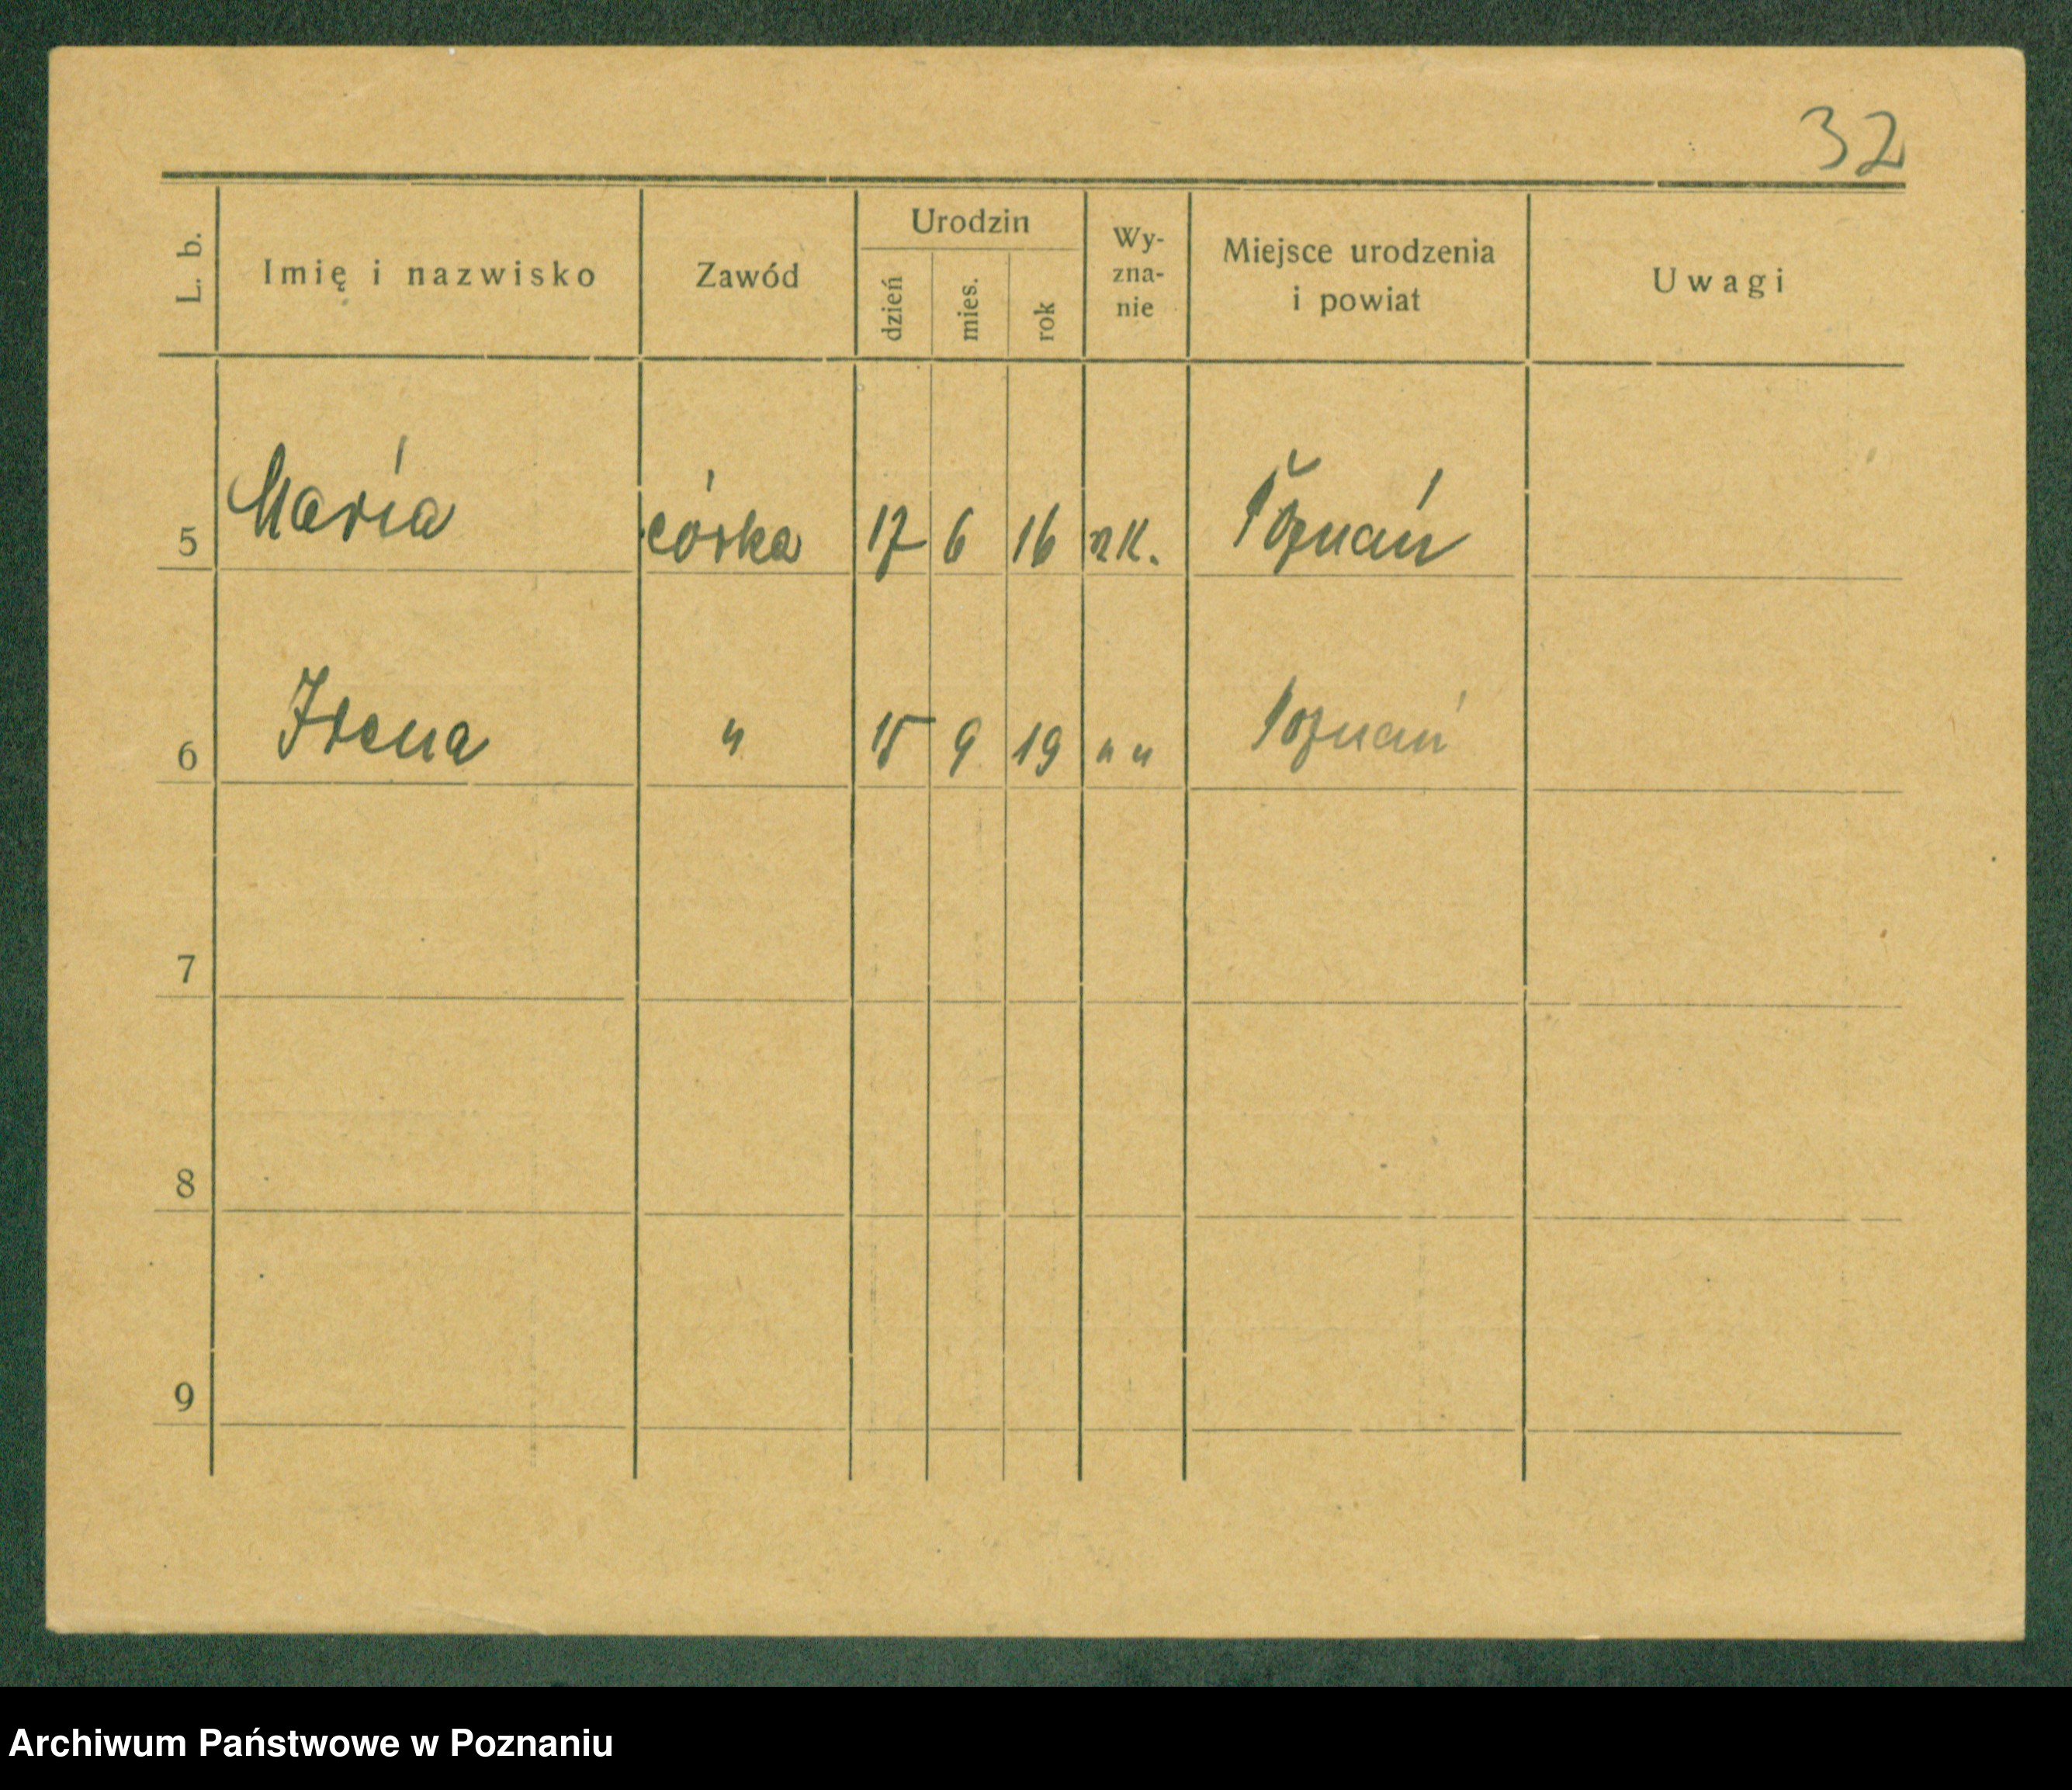 32
L. b. Imię i nazwisko Zawód Urodzin dzień mies. rok Wy-zna-nie Miejsce urodzenia i powiat Uwagi
5 Maria córka 17 6 16 rzk. Poznań
6 Irena " 15 9 19 " " Poznań
7
8
9
Archiwum Państwowe w Poznaniu